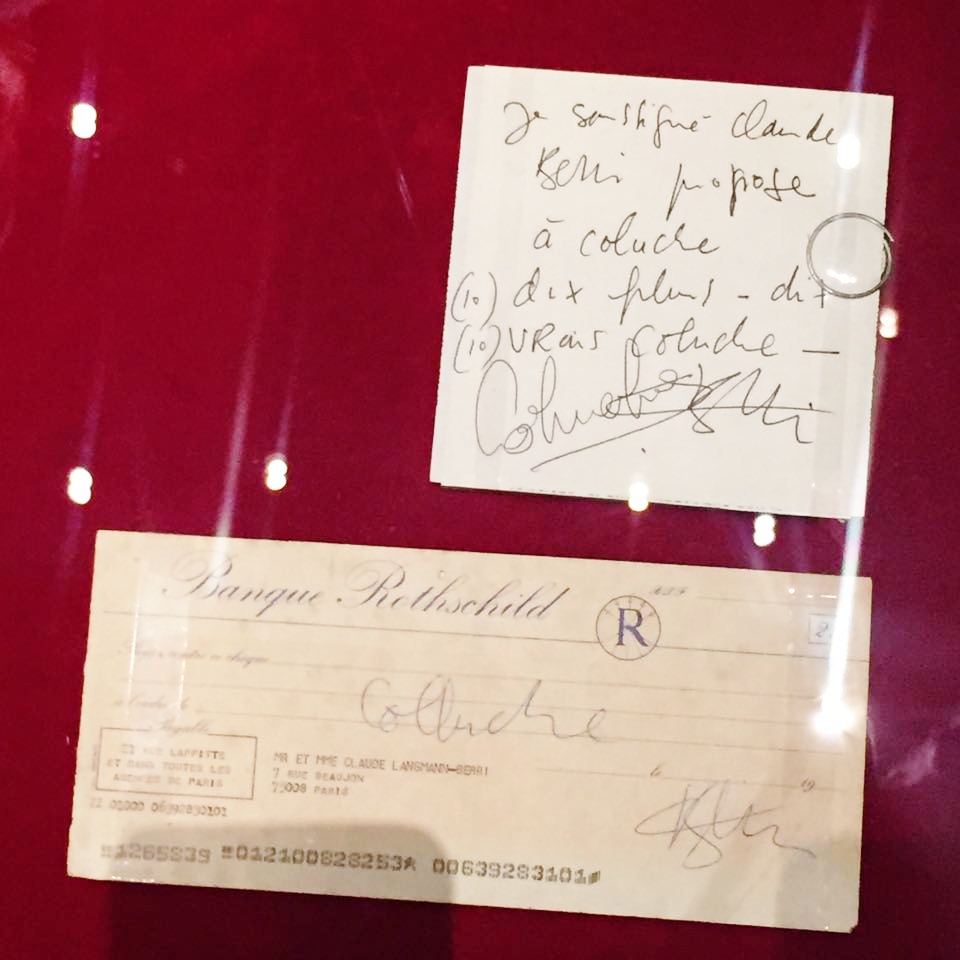 Je soussigné Claude
Berri propose
à coluche
(10) dix films - dix
(10) VRais Coluche —
Coluche
Banque Rothschild
R
Colluche
21 RUE LAFFITTE
ET DANS TOUTES LES
AGENCES DE PARIS
MR ET MME CLAUDE LANGMANN-BERRI
7 RUE BEAUJON
75008 PARIS
19
22 01000 06392830101
1265839 012100828253 00639283101